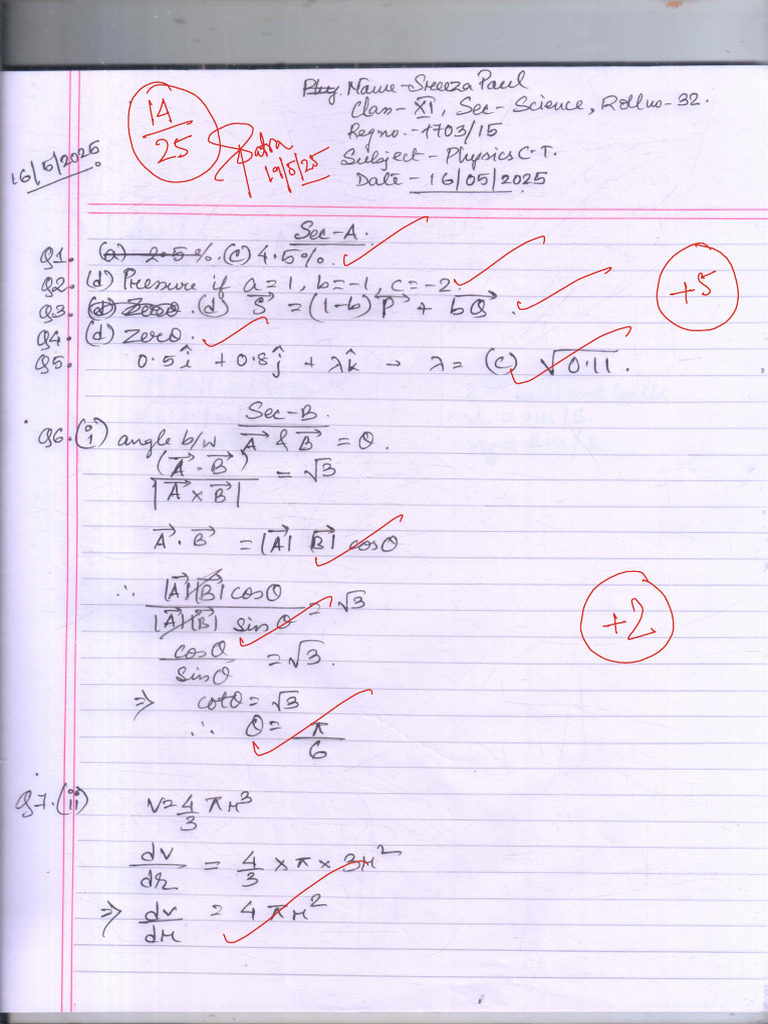 14
25
16/5/2025
Patra
19/5/25
Phy. Name-Sreeza Paul
Class- XI, Sec- Science, Roll no-32.
Reg no.-1703/15
Subject-Physics C.T.
Date - 16/05/2025
Sec-A.
Q1. (a) 2.5%. (c) 4.5%.
Q2. (d) Pressure if a=1, b=-1, c=-2.
Q3. (d) Zero. (d) S⃗ = (1-b)P⃗ + bQ⃗.
+5
Q4. (d) Zero.
Q5. 0.5î + 0.8ĵ + λk̂ → λ = (c) √0.11.
Sec-B.
Q6.(i) angle b/w A⃗ & B⃗ = θ.
(A⃗ · B⃗) / |A⃗ × B⃗| = √3
A⃗ · B⃗ = |A⃗| |B⃗| cosθ
∴ |A⃗||B⃗| cosθ / |A⃗||B⃗| sinθ = √3
+2
cosθ / sinθ = √3.
⇒ cotθ = √3
∴ θ = π/6
Q7.(ii) V=4/3 πr³
dv/dr = 4/3 × π × 3r²
⇒ dv/dr = 4πr²